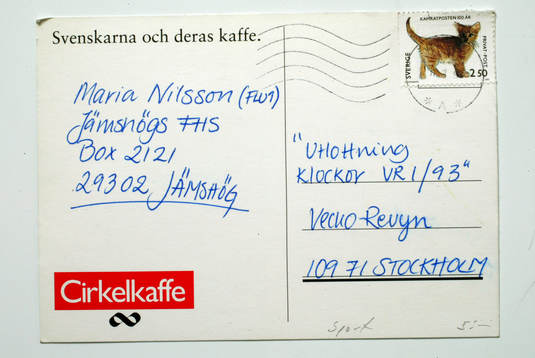 Svenskarna och deras kaffe.
KAMRATPOSTEN 100 ÅR
SVERIGE
PRIVAT-POST
2 50
Maria Nilsson (FLU1)
Jämshögs FHS
Box 2121
29302 JÄMSHÖG
"Utlottning
KLOCKOR VR 1/93"
Vecko-Revyn
109 71 STOCKHOLM
Cirkelkaffe
Sport
5:-